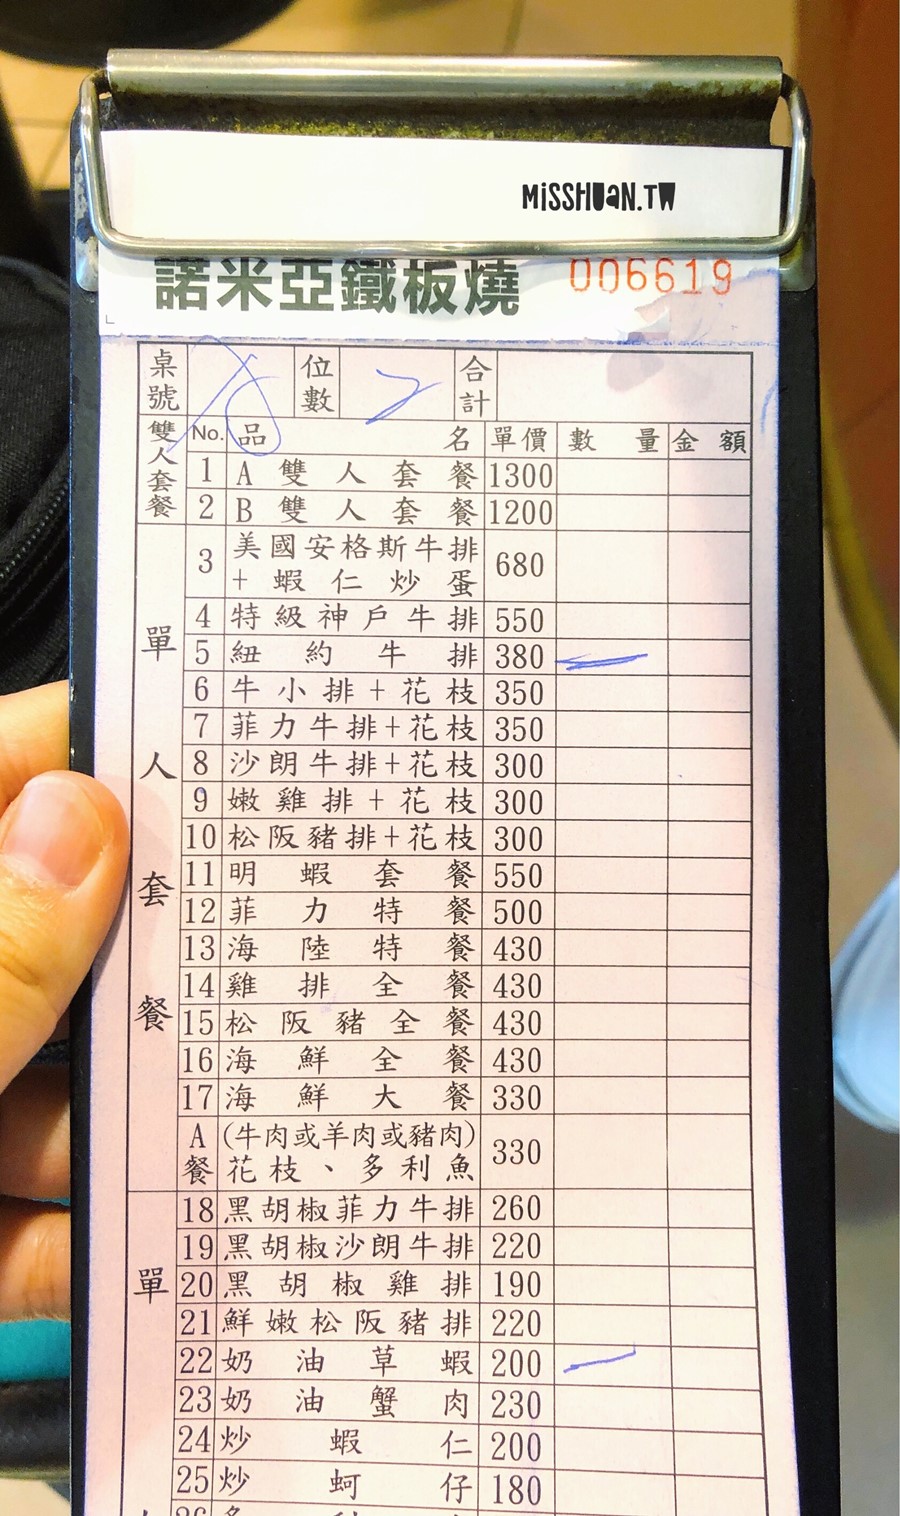 MISSHUAN.TW
諾米亞鐵板燒 006619
桌號 位數 2 合計
雙人套餐 No. 品名 單價 數量 金額
1 A雙人套餐 1300
2 B雙人套餐 1200
單人套餐
3 美國安格斯牛排
+蝦仁炒蛋 680
4 特級神戶牛排 550
5 紐約牛排 380
6 牛小排+花枝 350
7 菲力牛排+花枝 350
8 沙朗牛排+花枝 300
9 嫩雞排+花枝 300
10 松阪豬排+花枝 300
11 明蝦套餐 550
12 菲力特餐 500
13 海陸特餐 430
14 雞排全餐 430
15 松阪豬全餐 430
16 海鮮全餐 430
17 海鮮大餐 330
A餐 (牛肉或羊肉或豬肉)
花枝、多利魚 330
單
18 黑胡椒菲力牛排 260
19 黑胡椒沙朗牛排 220
20 黑胡椒雞排 190
21 鮮嫩松阪豬排 220
22 奶油草蝦 200
23 奶油蟹肉 230
24 炒蝦仁 200
25 炒蚵仔 180